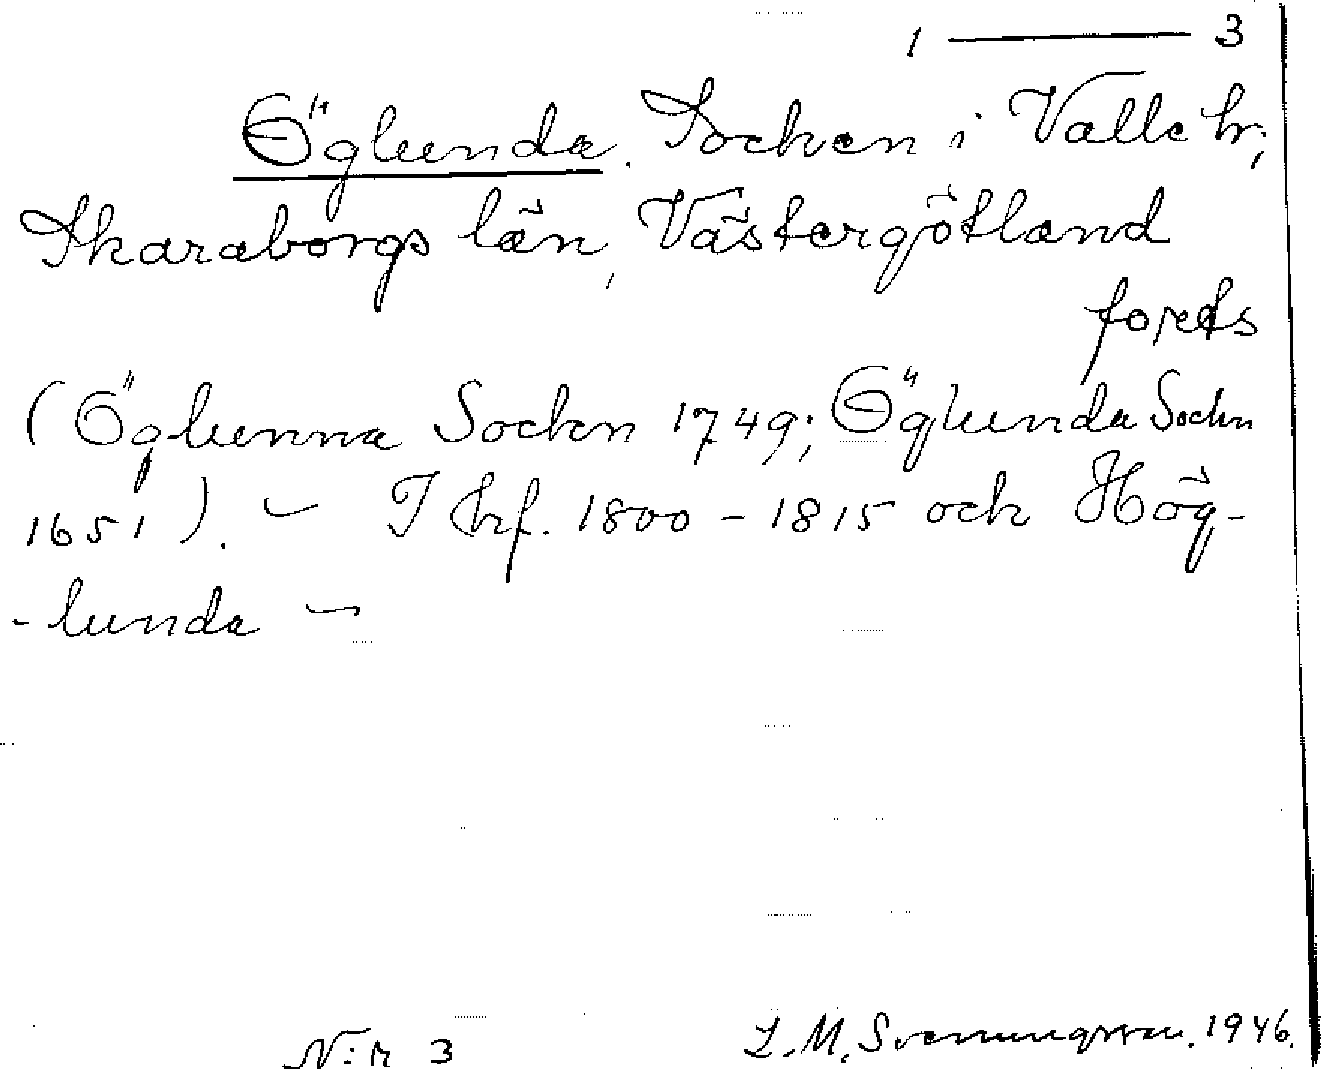 1 — 3
Öglunda. Socken i Valle hr,
Skaraborgs län, Västergötland
forts
(Öglunna Sockn 1749; Öglunda Sockn
1651). – I hf. 1800 – 1815 och Hög-
-lunda –
N:r 3
L. M. Svenungsson. 1946.